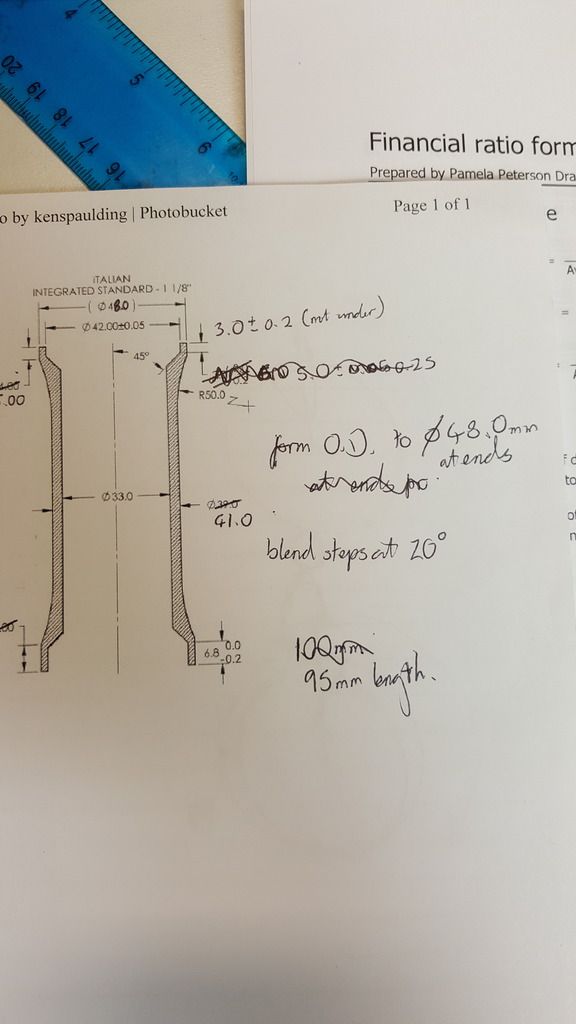 4
5
6
20
19
18
17
16
Financial ratio form
Prepared by Pamela Peterson Dra
o by kenspaulding | Photobucket
Page 1 of 1
e
=
A
=
ITALIAN
INTEGRATED STANDARD - 1 1/8"
( Ø48.0 )
Ø42.00±0.05
3.0 ± 0.2 (not under)
45°
5.0 ± 0.25
.00
R50.0
form O.D. to Ø48.0mm
at ends
at ends
Ø33.0
Ø39.0
41.0
blend steps at 20°
6.8 0.0
-0.2
100mm
95mm length.